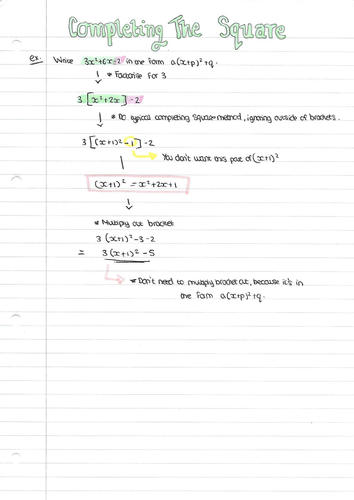 Completing The Square
ex. Write 3x²+6x-2 in the form a(x+p)²+q.
↓ * Factorise for 3
3[x²+2x]-2
↓ * Do typical completing square method, ignoring outside of brackets.
3[(x+1)²-1]-2
You don't want this part of (x+1)²
(x+1)² = x²+2x+1
↓
* Multiply out bracket
3(x+1)²-3-2
= 3(x+1)²-5
* Don't need to multiply bracket out, because it's in
the form a(x+p)²+q.